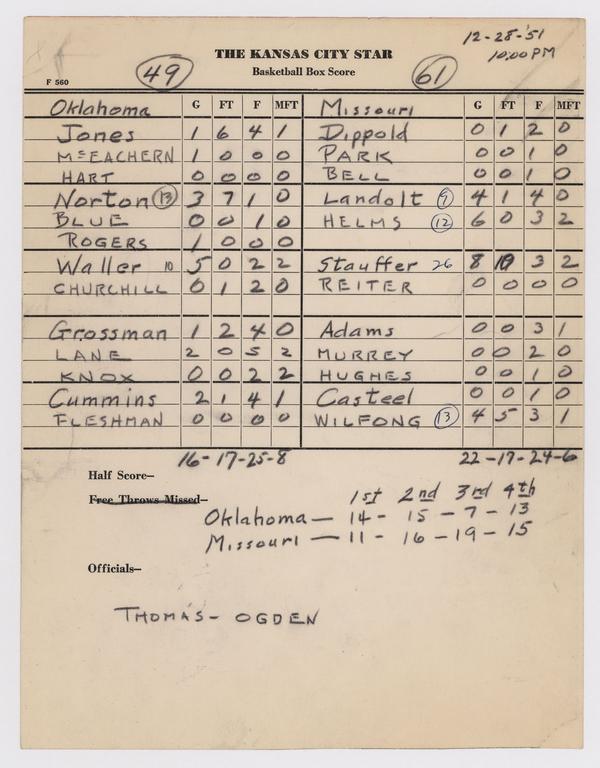 12-28-'51
THE KANSAS CITY STAR
10:00 PM
49 Basketball Box Score 61
F 560
Oklahoma G FT F MFT Missouri G FT F MFT
Jones 1 6 4 1 Dippold 0 1 2 0
McEACHERN 1 0 0 0 PARK 0 0 1 0
HART 0 0 0 0 BELL 0 0 1 0
Norton 13 3 7 1 0 Landolt 9 4 1 4 0
BLUE 0 0 1 0 HELMS 12 6 0 3 2
ROGERS 1 0 0 0
Waller 10 5 0 2 2 Stauffer 26 8 10 3 2
CHURCHILL 0 1 2 0 REITER 0 0 0 0
Grossman 1 2 4 0 Adams 0 0 3 1
LANE 2 0 5 2 MURREY 0 0 2 0
KNOX 0 0 2 2 HUGHES 0 0 1 0
Cummins 2 1 4 1 Casteel 0 0 1 0
FLESHMAN 0 0 0 0 WILFONG 13 4 5 3 1
16-17-25-8 22-17-24-6
Half Score—
Free Throws Missed— 1st 2nd 3rd 4th
Oklahoma — 14 - 15 - 7 - 13
Missouri — 11 - 16 - 19 - 15
Officials—
THOMAS - OGDEN